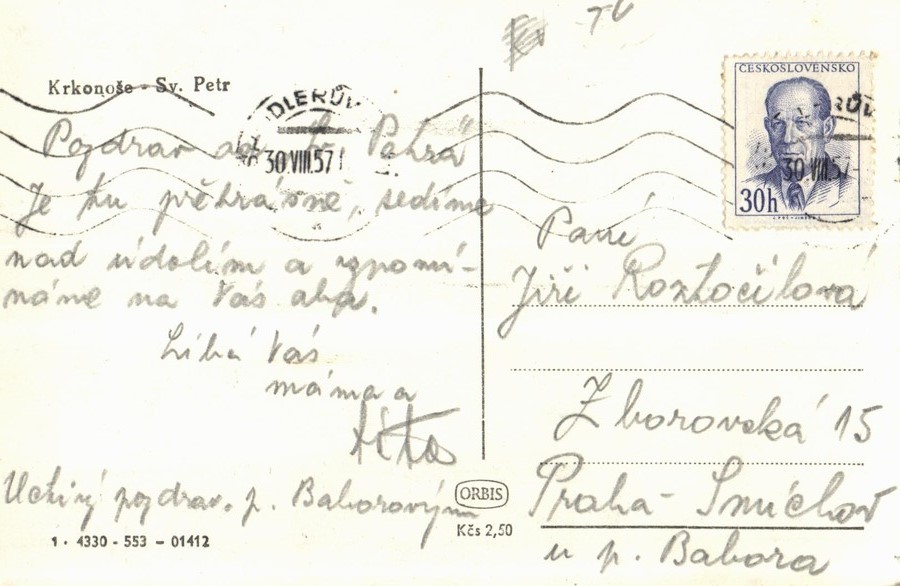 Krkonoše - Sv. Petr
Pozdrav od "Sv. Petra"
Je tu překrásně, sedíme
nad údolím a vzpomí-
náme na Vás oba.
Líbá Vás
máma a
táta
Uctivý pozdrav p. Baborovým
1 · 4330 - 553 - 01412
ORBIS
Kčs 2,50
30.VIII.57
ČESKOSLOVENSKO
30.VIII.57
30h
Paní
Jiři Roztočilová
Zborovská 15
Praha - Smíchov
u p. Babora